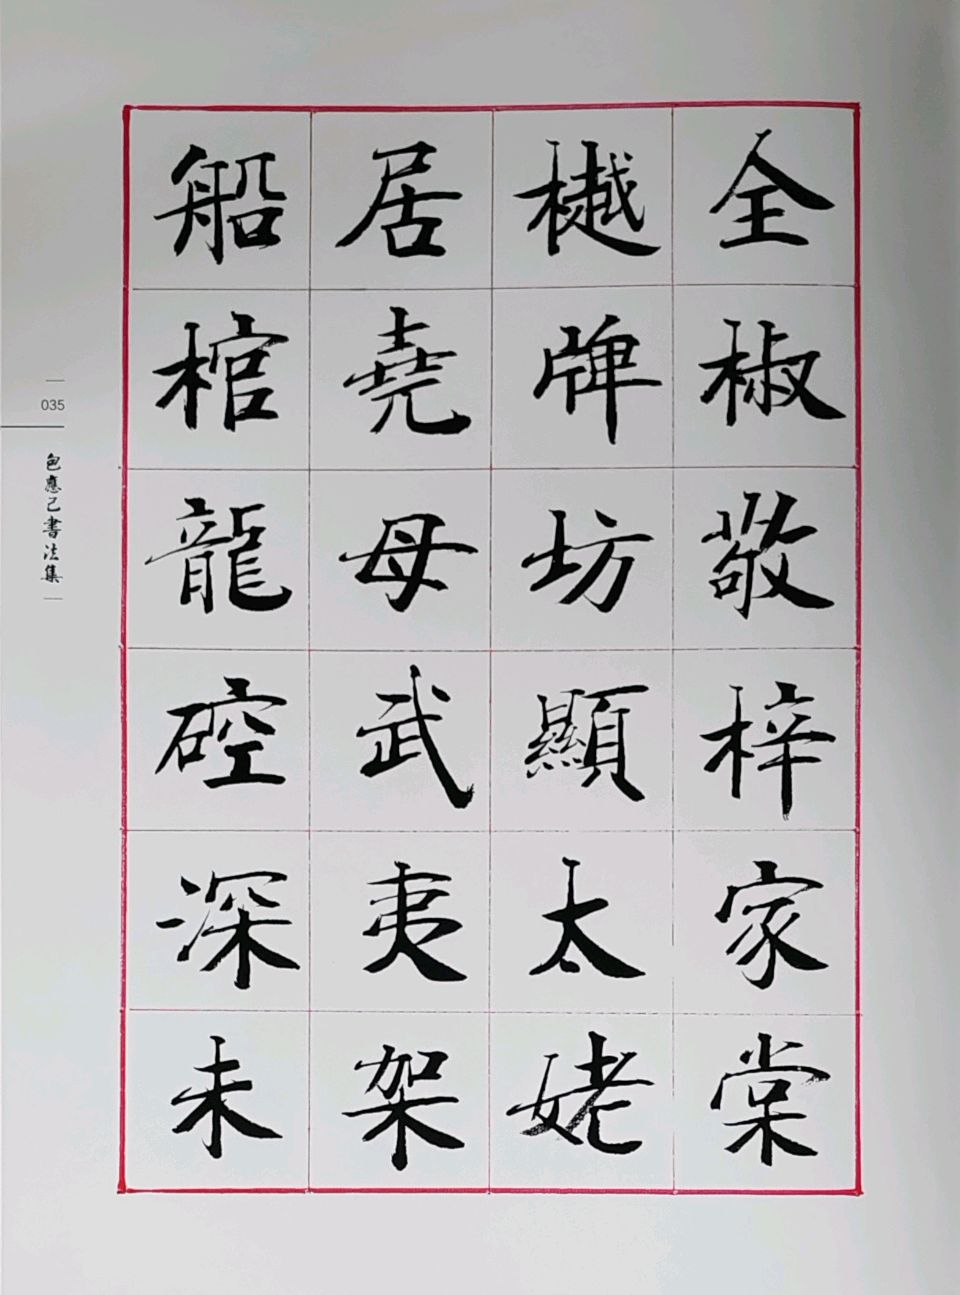 全椒敬梓家棠
樾牌坊顯太姥
居堯母武夷架
船棺龍硿深未
035
包應己書法集